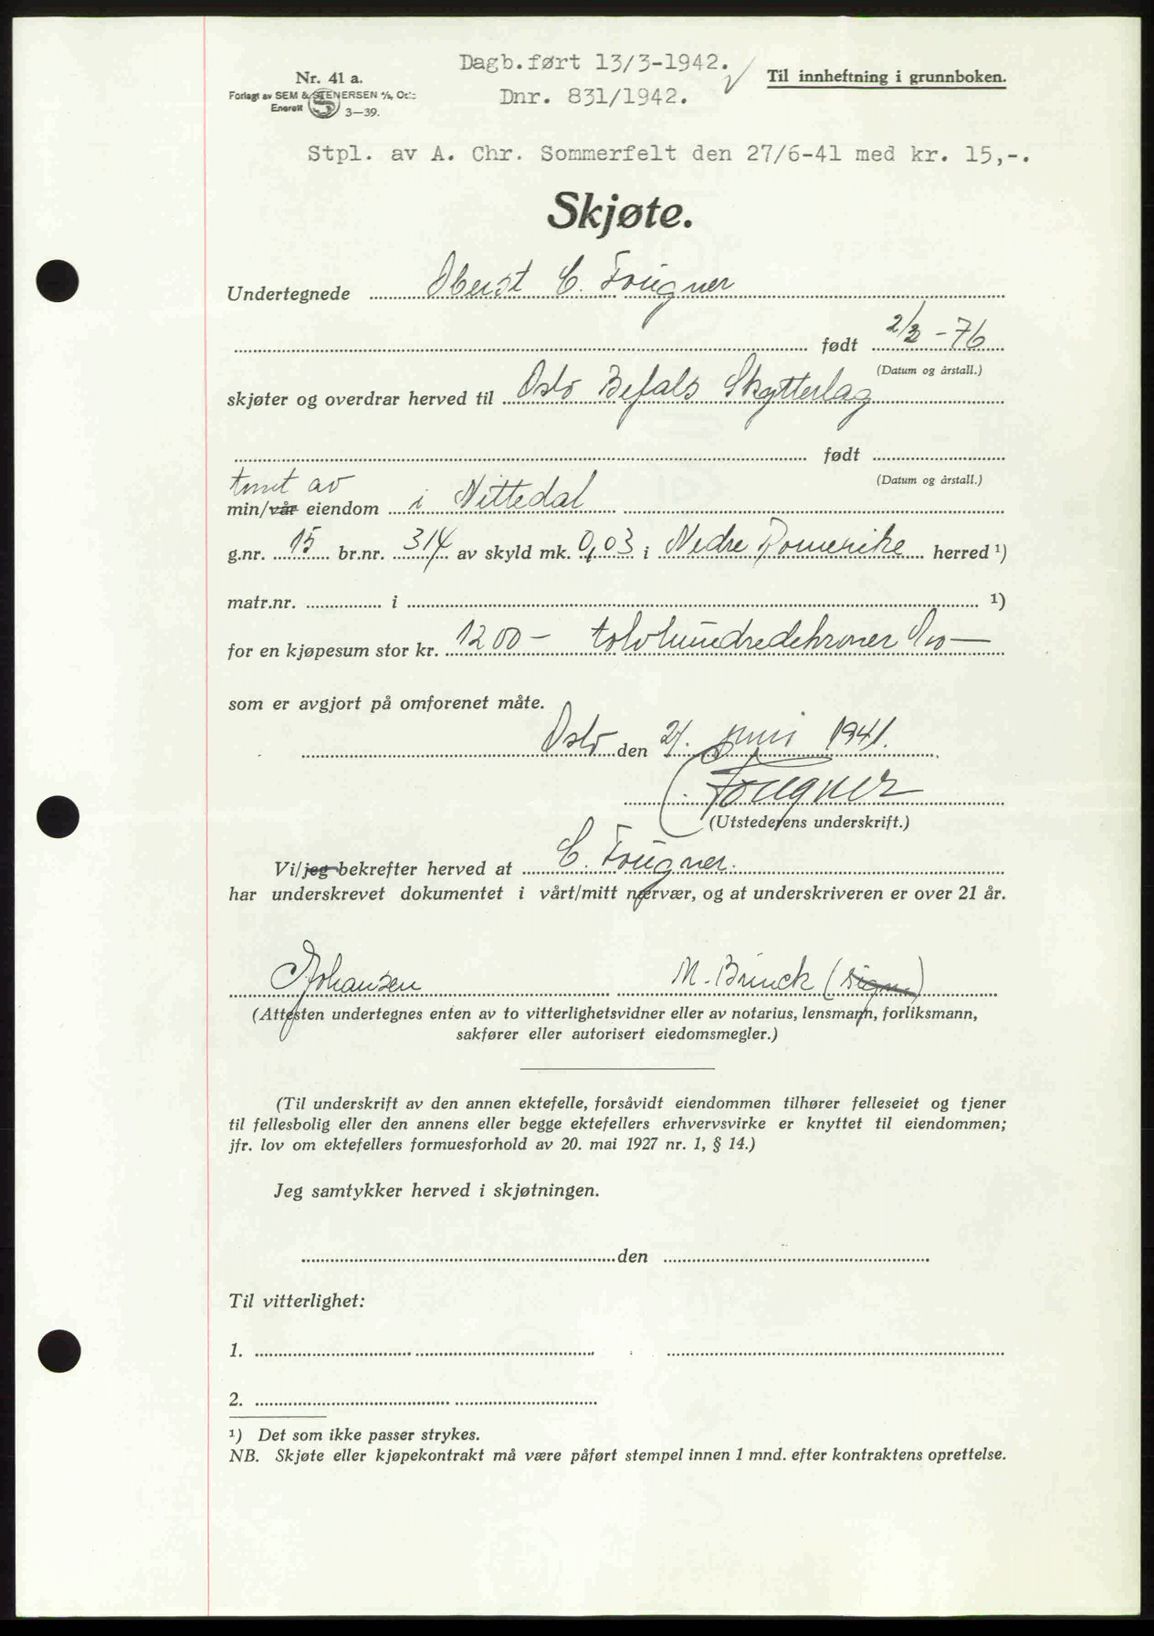 Dagb.ført 13/3-1942.
Nr. 41 a.
Til innheftning i grunnboken.
Forlagt av SEM & STENERSEN A/S, Oslo
Dnr. 831/1942.
Enerett S 3—39.
Stpl. av A. Chr. Sommerfelt den 27/6-41 med kr. 15,-.
Skjøte.
Undertegnede Oberst C. Fougner
født 2/3 - 76
(Datum og årstall.)
skjøter og overdrar herved til Oslo Befals Skytterlag
født
(Datum og årstall.)
tomt av
min/vår eiendom i Nittedal
g.nr. 15 br.nr. 314 av skyld mk. 0,03 i Nedre Romerike herred ¹)
matr.nr. i ¹)
for en kjøpesum stor kr. 1200 - tolvhundredekroner
som er avgjort på omforenet måte.
Oslo den 21. juni 1941.
C. Fougner
(Utstederens underskrift.)
Vi/jeg bekrefter herved at C. Fougner.
har underskrevet dokumentet i vårt/mitt nærvær, og at underskriveren er over 21 år.
Johansen M. Brinck (sign)
(Attesten undertegnes enten av to vitterlighetsvidner eller av notarius, lensmann, forliksmann,
sakfører eller autorisert eiedomsmegler.)
(Til underskrift av den annen ektefelle, forsåvidt eiendommen tilhører felleseiet og tjener
til fellesbolig eller den annens eller begge ektefellers erhvervsvirke er knyttet til eiendommen;
jfr. lov om ektefellers formuesforhold av 20. mai 1927 nr. 1, § 14.)
Jeg samtykker herved i skjøtningen.
den
Til vitterlighet:
1.
2.
¹) Det som ikke passer strykes.
NB. Skjøte eller kjøpekontrakt må være påført stempel innen 1 mnd. efter kontraktens oprettelse.